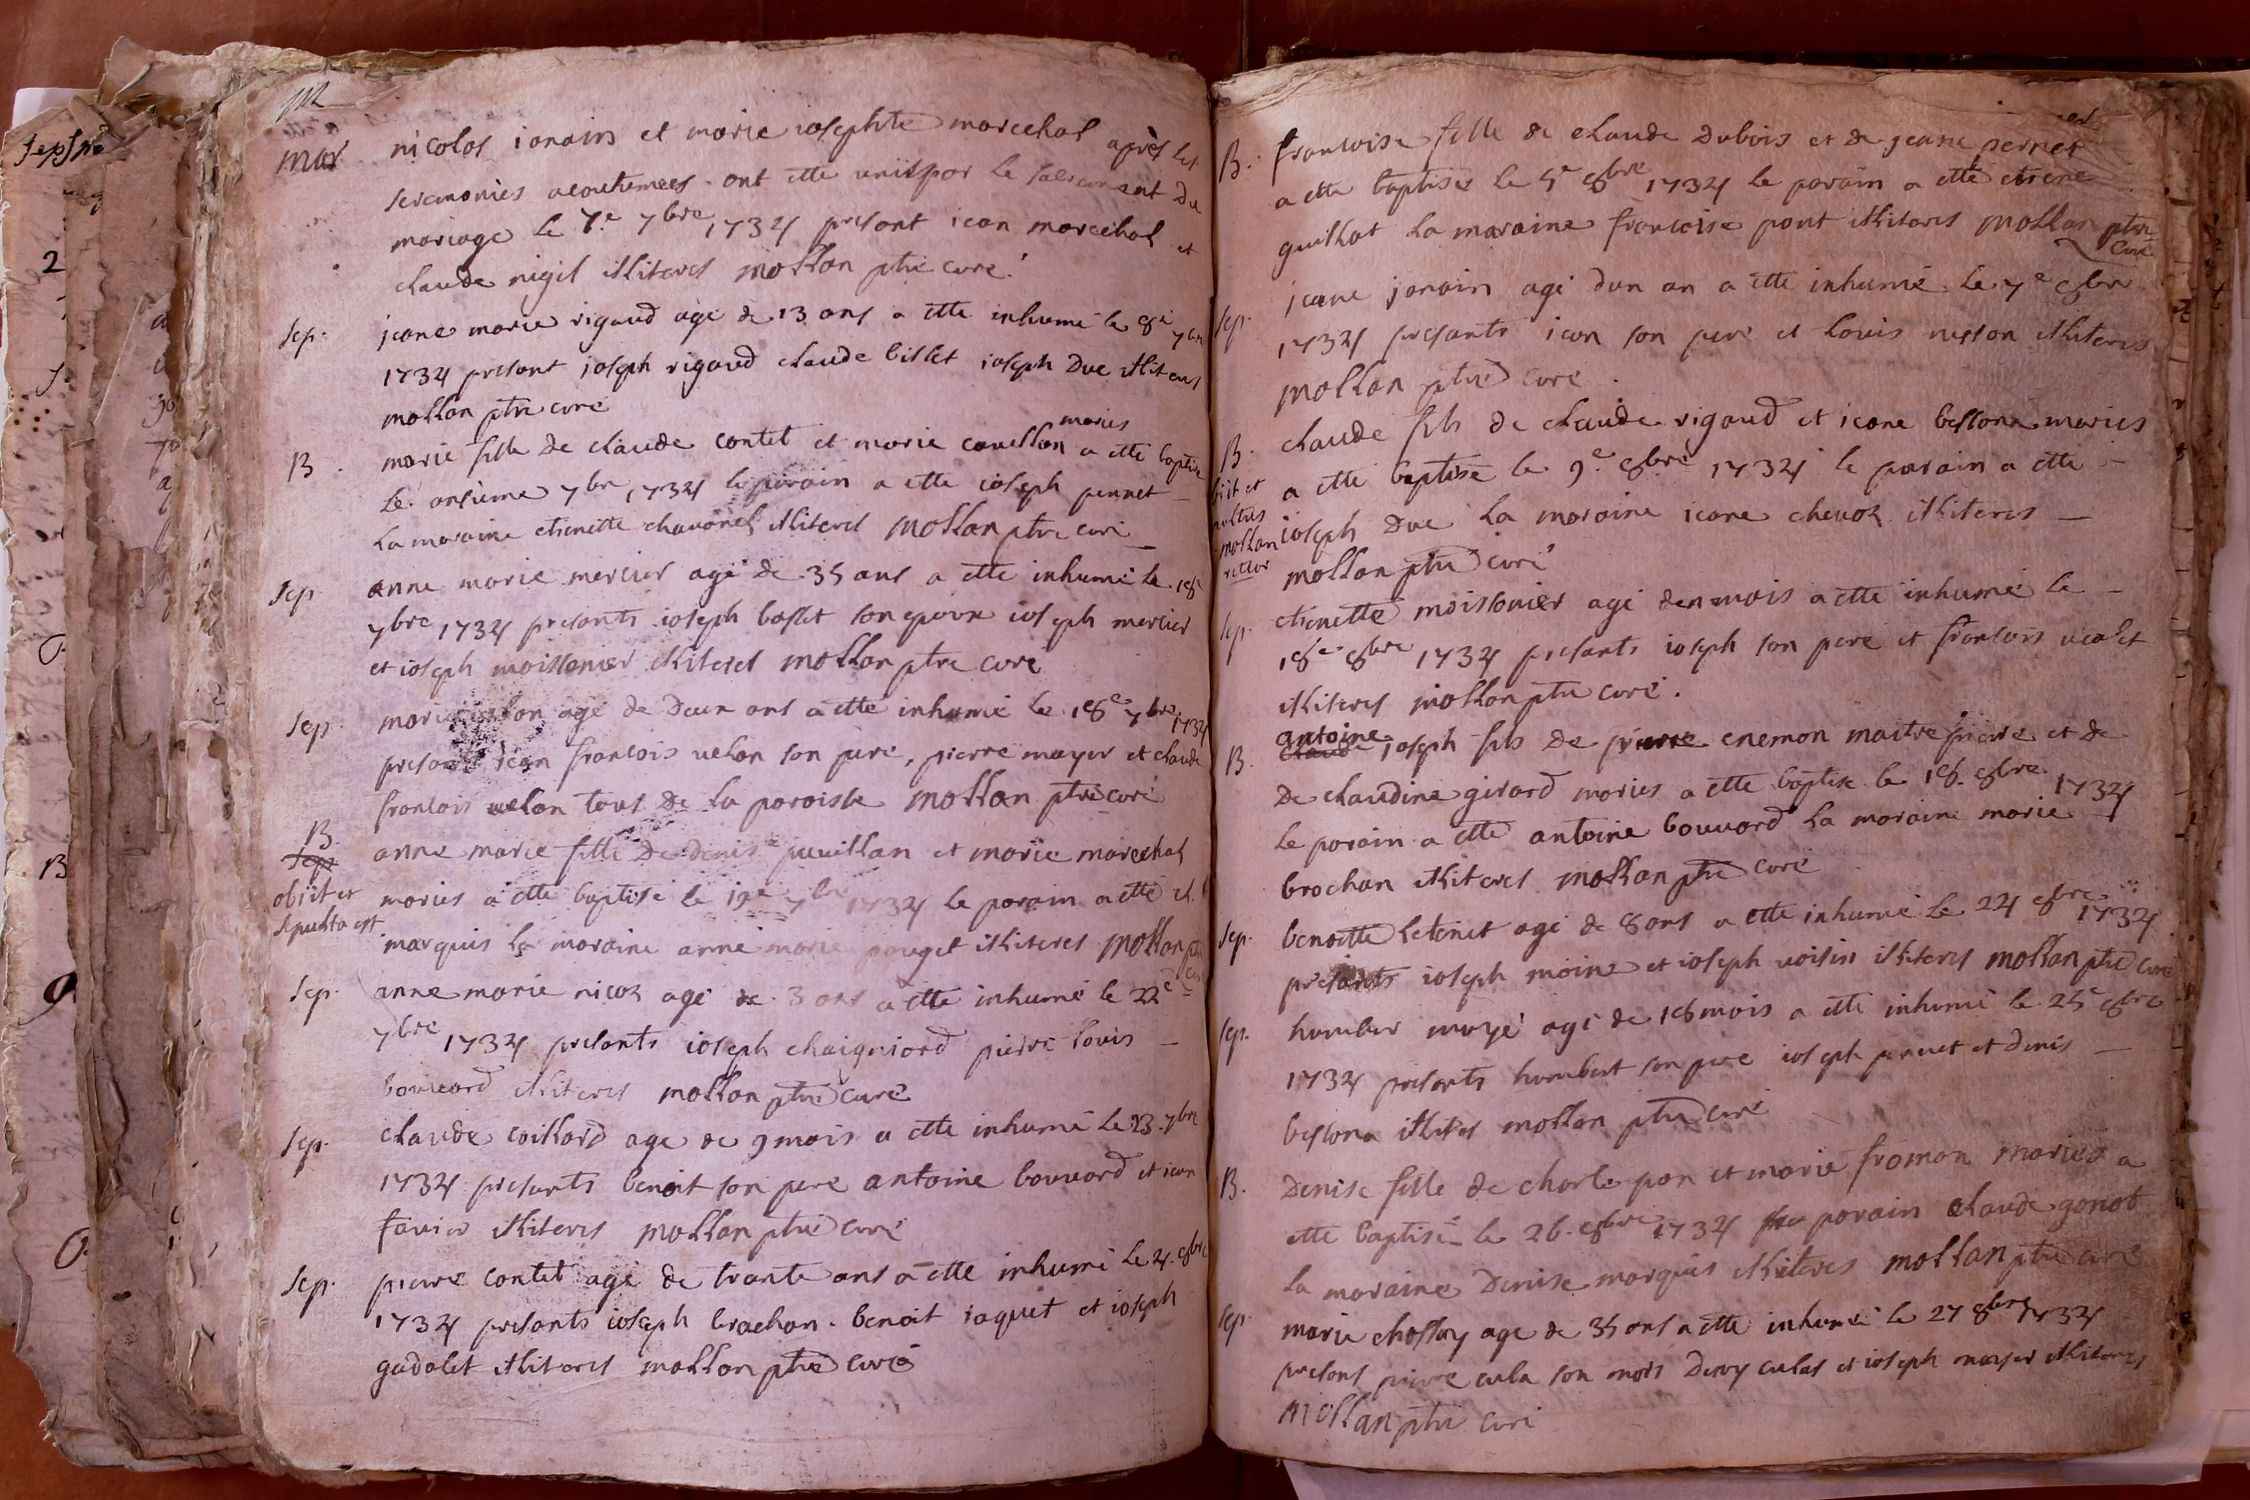 Mar nicolas ianain et marie iosephte marechal après les
seremonies acoutumees ont etté unis par le sacrement du
mariage le 7e 7bre 1734 presant iean marechal et
claude nigil illiteres mollan ptre curé
Sep. jeane marie rigaud agé de 13 ans a etté inhumé le 8e 7bre
1734 presant ioseph rigaud claude billet ioseph Duc illiteres
mollan ptre curé
B. marie fille de claude contet et marie cauellan maries a etté baptise
Le onsieme 7bre 1734 le parain a etté ioseph pernet
La maraine etienette chavanel illiteres mollan ptre curé
Sep anne marie mercier agé de 35 ans a etté inhumé le 18e
7bre 1734 presants ioseph basset son epoux ioseph mercier
et ioseph moissonier illiteres mollan ptre curé
Sep. marie uelon agé de Deux ans a etté inhumé le 18e 7bre 1734
presant iean francois uelon son pere, pierre mayer et claude
francois uelon tous de la paroisse mollan ptre curé
B
Sep
obiit et
sepulta est
anne marie fille De denis puuillan et marie marechal
maries a etté baptisé le 19e 7bre 1734 le parain a etté cl.
marquis la maraine anne marie pouget illiteres mollan ptre curé
Sep. anne marie nicoz agé de 3 ans a etté inhumé le 22e
7bre 1734 presants ioseph chaigniard pierre louis
bouuard illiteres mollan ptre curé
Sep. claude coillard age de 9 mois a etté inhumé le 23 7bre
1734 presants benoit son pere antoine bouuard et iean
favier illiteres mollan ptre curé
Sep. pierre contet agé de trante ans a etté inhumé le 4 8bre
1734 presants ioseph brachan benoit iaquet et ioseph
gudolet illiteres mollan ptre curé
B. francoise fille de claude Dubois et de jeane pernet
a etté baptisé le 5e 8bre 1734 le parain a etté etiene
guillat La maraine francoise pont illiteres mollan ptre
curé
Sep. jeane janain agé dun an a etté inhumé le 7e 8bre
1734 presants iean son pere et Louis illiteres
mollan ptre curé
B. claude fils de claude rigaud et ieane bessona maries
a etté baptisé le 9e 8bre 1734 le parain a etté
ioseph Duc La maraine ieane chevoz illiteres
mollan ptre curé
obiit et
sepultus
mollan
rector
Sep. etienette moissonier agé den mois a etté inhumé le
18e 8bre 1734 presants ioseph son pere et francois
illiteres mollan ptre curé.
antoine
B. claude ioseph fils de pierre enemon maitre et de
De claudine girard maries a etté baptisé le 18 8bre 1734
le parain a etté antoine bouuard la maraine marie
brochan illiteres mollan ptre curé
Sep. benoitte letenet agé de 8 ans a etté inhumé le 24 8bre 1734
presants ioseph moine et ioseph uoisin illiteres mollan ptre curé
Sep. humber muyé agé de 18 mois a etté inhumé le 25e 8bre
1734 presants humbert son pere ioseph pernet et denis
bessona illiteres mollan ptre curé
B. Denise fille de charle pan et marie froman maries a
etté baptisé le 26 8bre 1734 parain claude gonot
la maraine Denise marquis illiteres mollan ptre curé
Sep. marie chossay age de 35 ans a etté inhumé le 27 8bre 1734
presant pierre cula son mari culas et ioseph mayer illiteres
mollan ptre curé